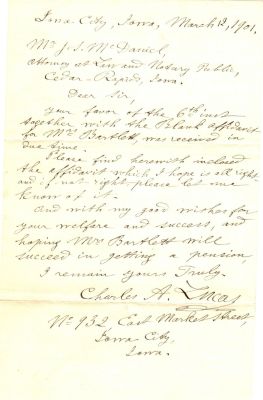 Iowa City, Iowa, March 12, 1901.
Mr J. S. McDaniel,
Attorney at Law and Notary Public,
Cedar-Rapids, Iowa.
Dear Sir,
Your favor of the 6th inst
together with the Blank affidavit
for Mrs Bartlett, was received in
due time.
Please find herewith inclosed
the affidavit which I hope is all right
and if not right please let me
know of it.
And with my good wishes for
your welfare and success, and
hoping Mrs Bartlett will
succeed in getting a pension
I remain yours Truly.
Charles A. Lucas
No 932, East Market Street,
Iowa City,
Iowa.